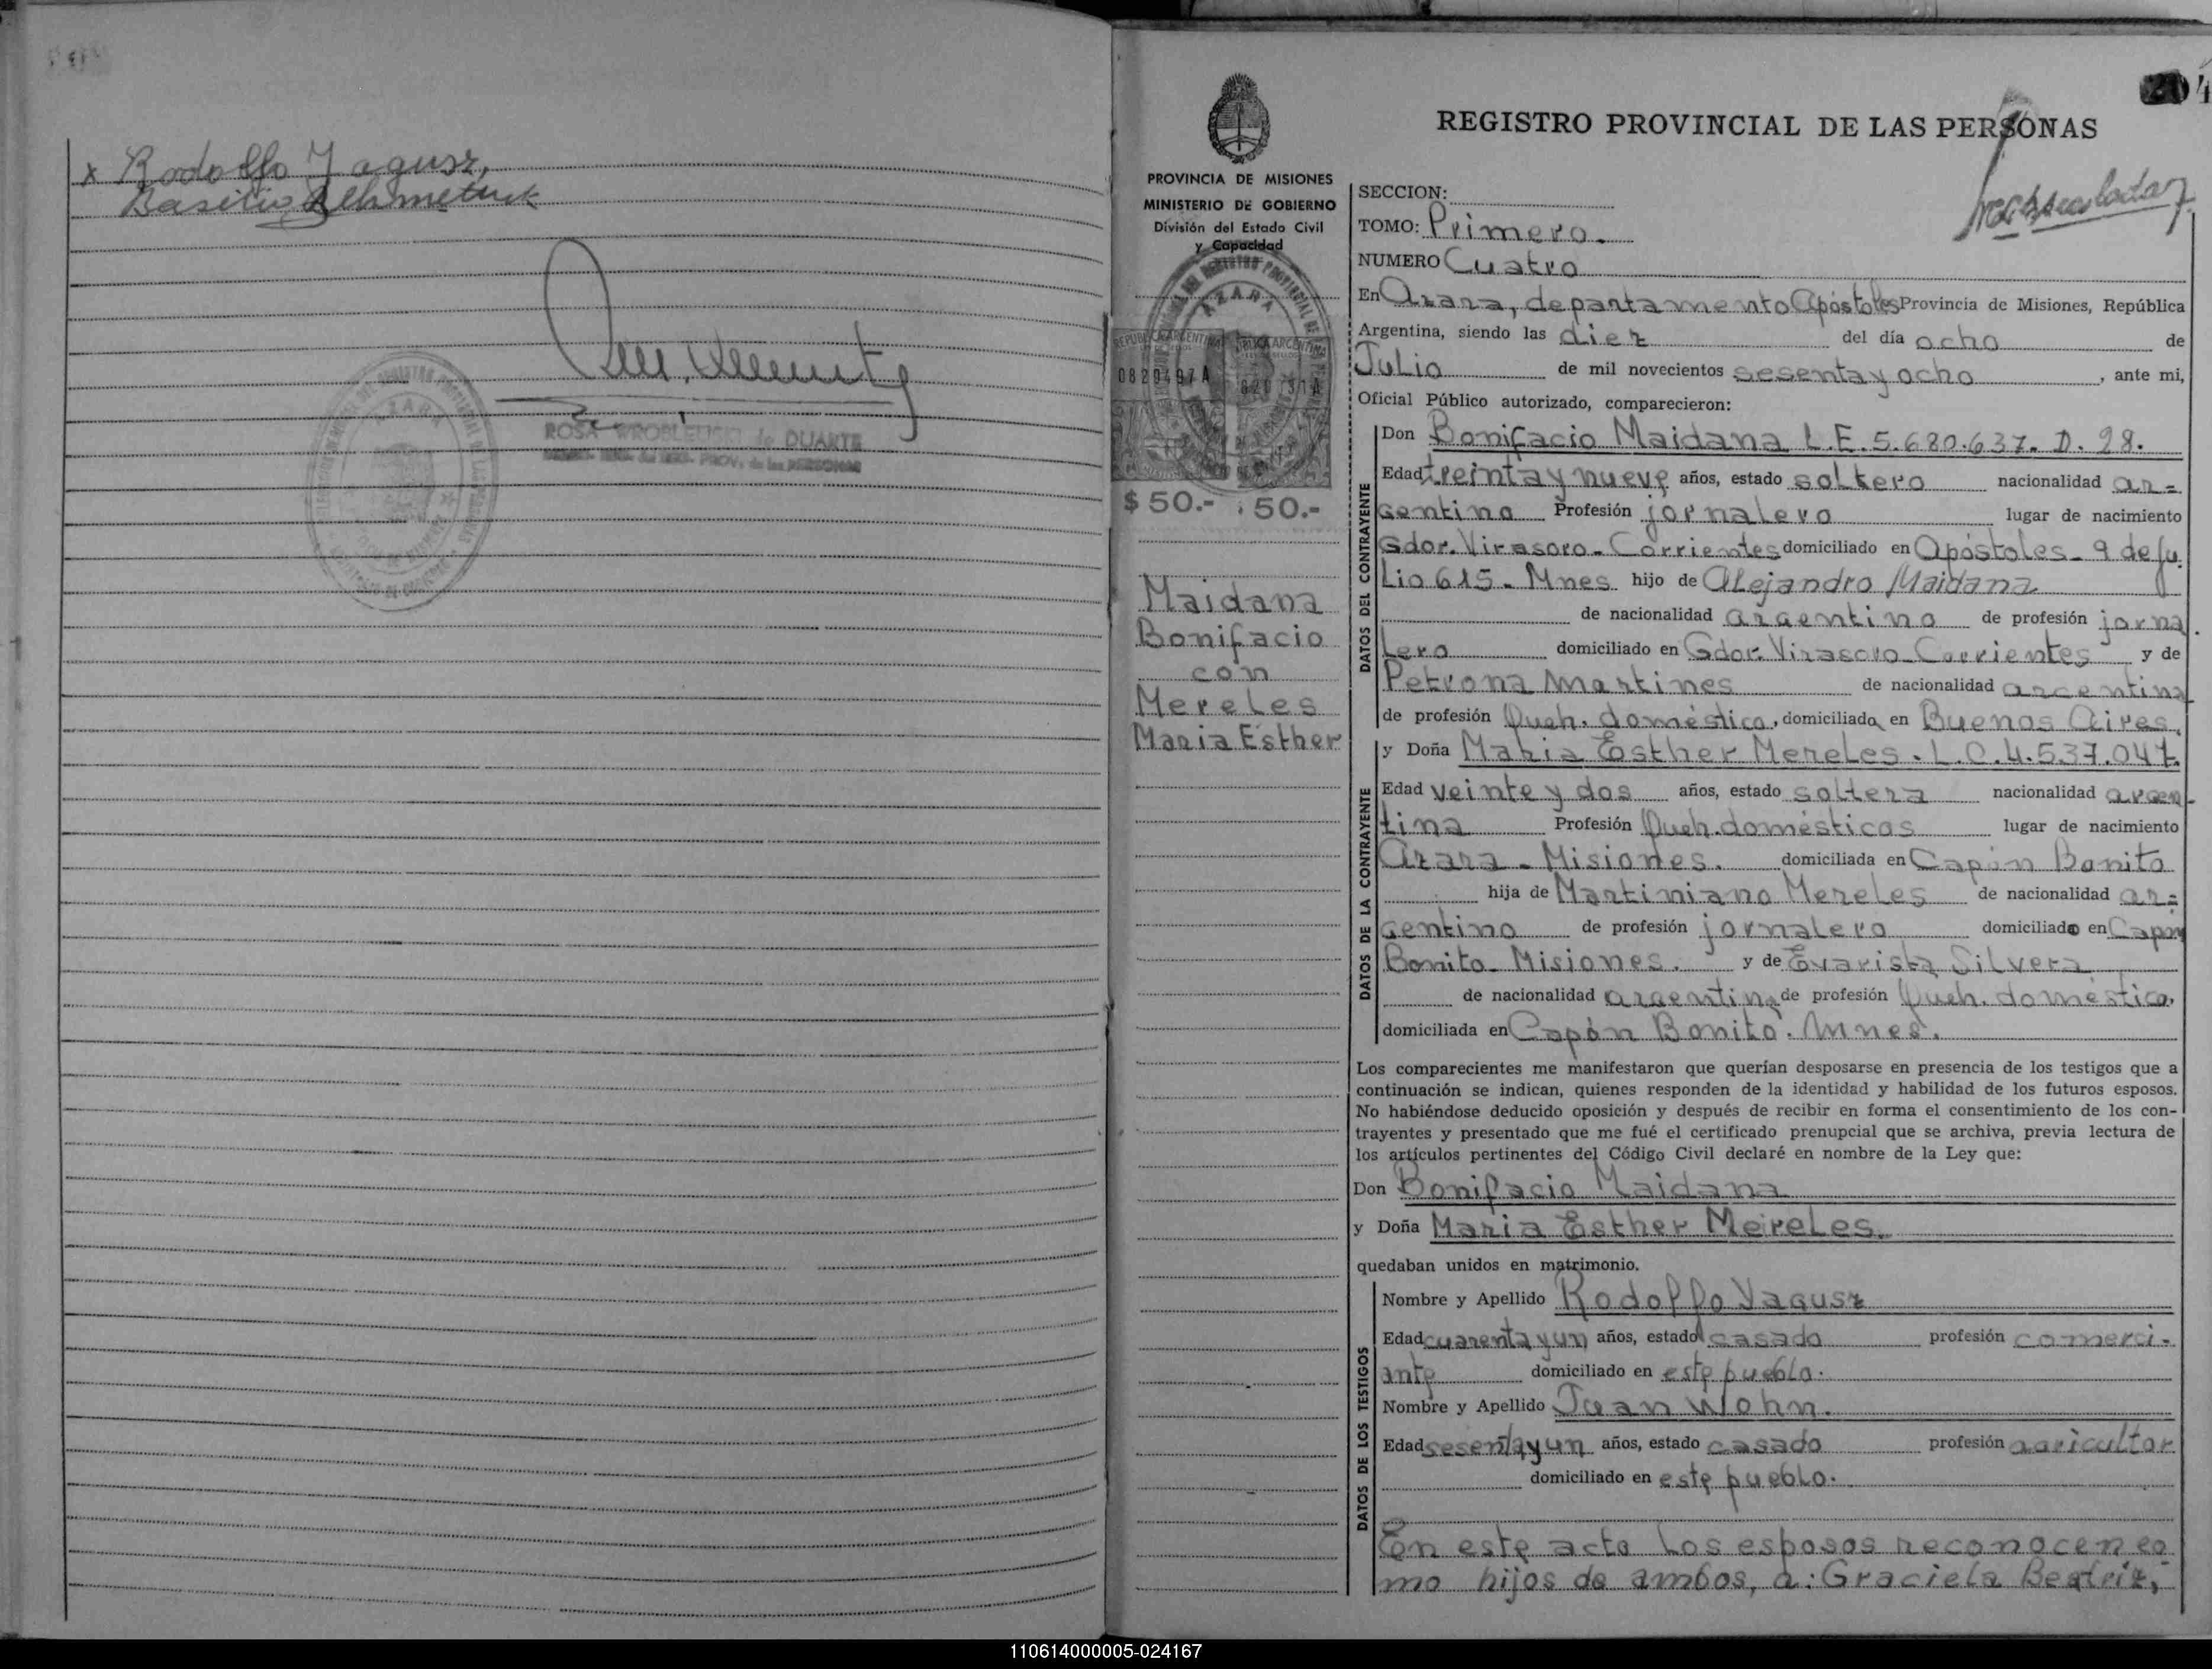 x Rodolfo Jagusz,
Basilio
ROSA WROBLEUSKI de DUARTE
204
REGISTRO PROVINCIAL DE LAS PERSONAS
PROVINCIA DE MISIONES
MINISTERIO DE GOBIERNO
División del Estado Civil
y Capacidad
AZARA
REPUBLICA ARGENTINA
0820497A
$ 50.- 50.-
Maidana
Bonifacio
con
Mereles
Maria Esther
SECCION:
TOMO: Primero.
NUMERO Cuatro
En Azara, departamento Apóstoles Provincia de Misiones, República
Argentina, siendo las diez del día ocho de
Julio de mil novecientos sesenta y ocho, ante mi,
Oficial Público autorizado, comparecieron:
DATOS DEL CONTRAYENTE
Don Bonifacio Maidana L.E. 5.680.637. D. 28.
Edad treinta y nueve años, estado soltero nacionalidad ar=
gentino Profesión jornalero lugar de nacimiento
Gdor. Virasoro - Corrientes domiciliado en Apóstoles - 9 de Ju
lio 615 - Mnes hijo de Alejandro Maidana
de nacionalidad argentino de profesión jorna
lero domiciliado en Gdor. Virasoro Corrientes y de
Petrona Martines de nacionalidad argentina
de profesión Queh. doméstico, domiciliada en Buenos Aires.
DATOS DE LA CONTRAYENTE
y Doña Maria Esther Mereles. L.C. 4.537.047.
Edad veinte y dos años, estado soltera nacionalidad argen-
tina Profesión Queh. domésticos lugar de nacimiento
Azara - Misiones. domiciliada en Capón Bonito
hija de Martiniano Mereles de nacionalidad ar=
gentino de profesión jornalero domiciliado en Capón
Bonito - Misiones. y de Evarista Silvera
de nacionalidad argentina de profesión Queh. doméstico,
domiciliada en Capón Bonito. Mnes.
Los comparecientes me manifestaron que querían desposarse en presencia de los testigos que a
continuación se indican, quienes responden de la identidad y habilidad de los futuros esposos.
No habiéndose deducido oposición y después de recibir en forma el consentimiento de los con-
trayentes y presentado que me fué el certificado prenupcial que se archiva, previa lectura de
los artículos pertinentes del Código Civil declaré en nombre de la Ley que:
Don Bonifacio Maidana
y Doña Maria Esther Meireles.
quedaban unidos en matrimonio.
DATOS DE LOS TESTIGOS
Nombre y Apellido Rodolfo Yagusz
Edad cuarenta y un años, estado casado profesión comerci-
ante domiciliado en este pueblo.
Nombre y Apellido Juan Wohn.
Edad sesenta y un años, estado casado profesión agricultor
domiciliado en este pueblo.
En este acto los esposos reconocen co
mo hijos de ambos, a: Graciela Beatriz,
110614000005-024167